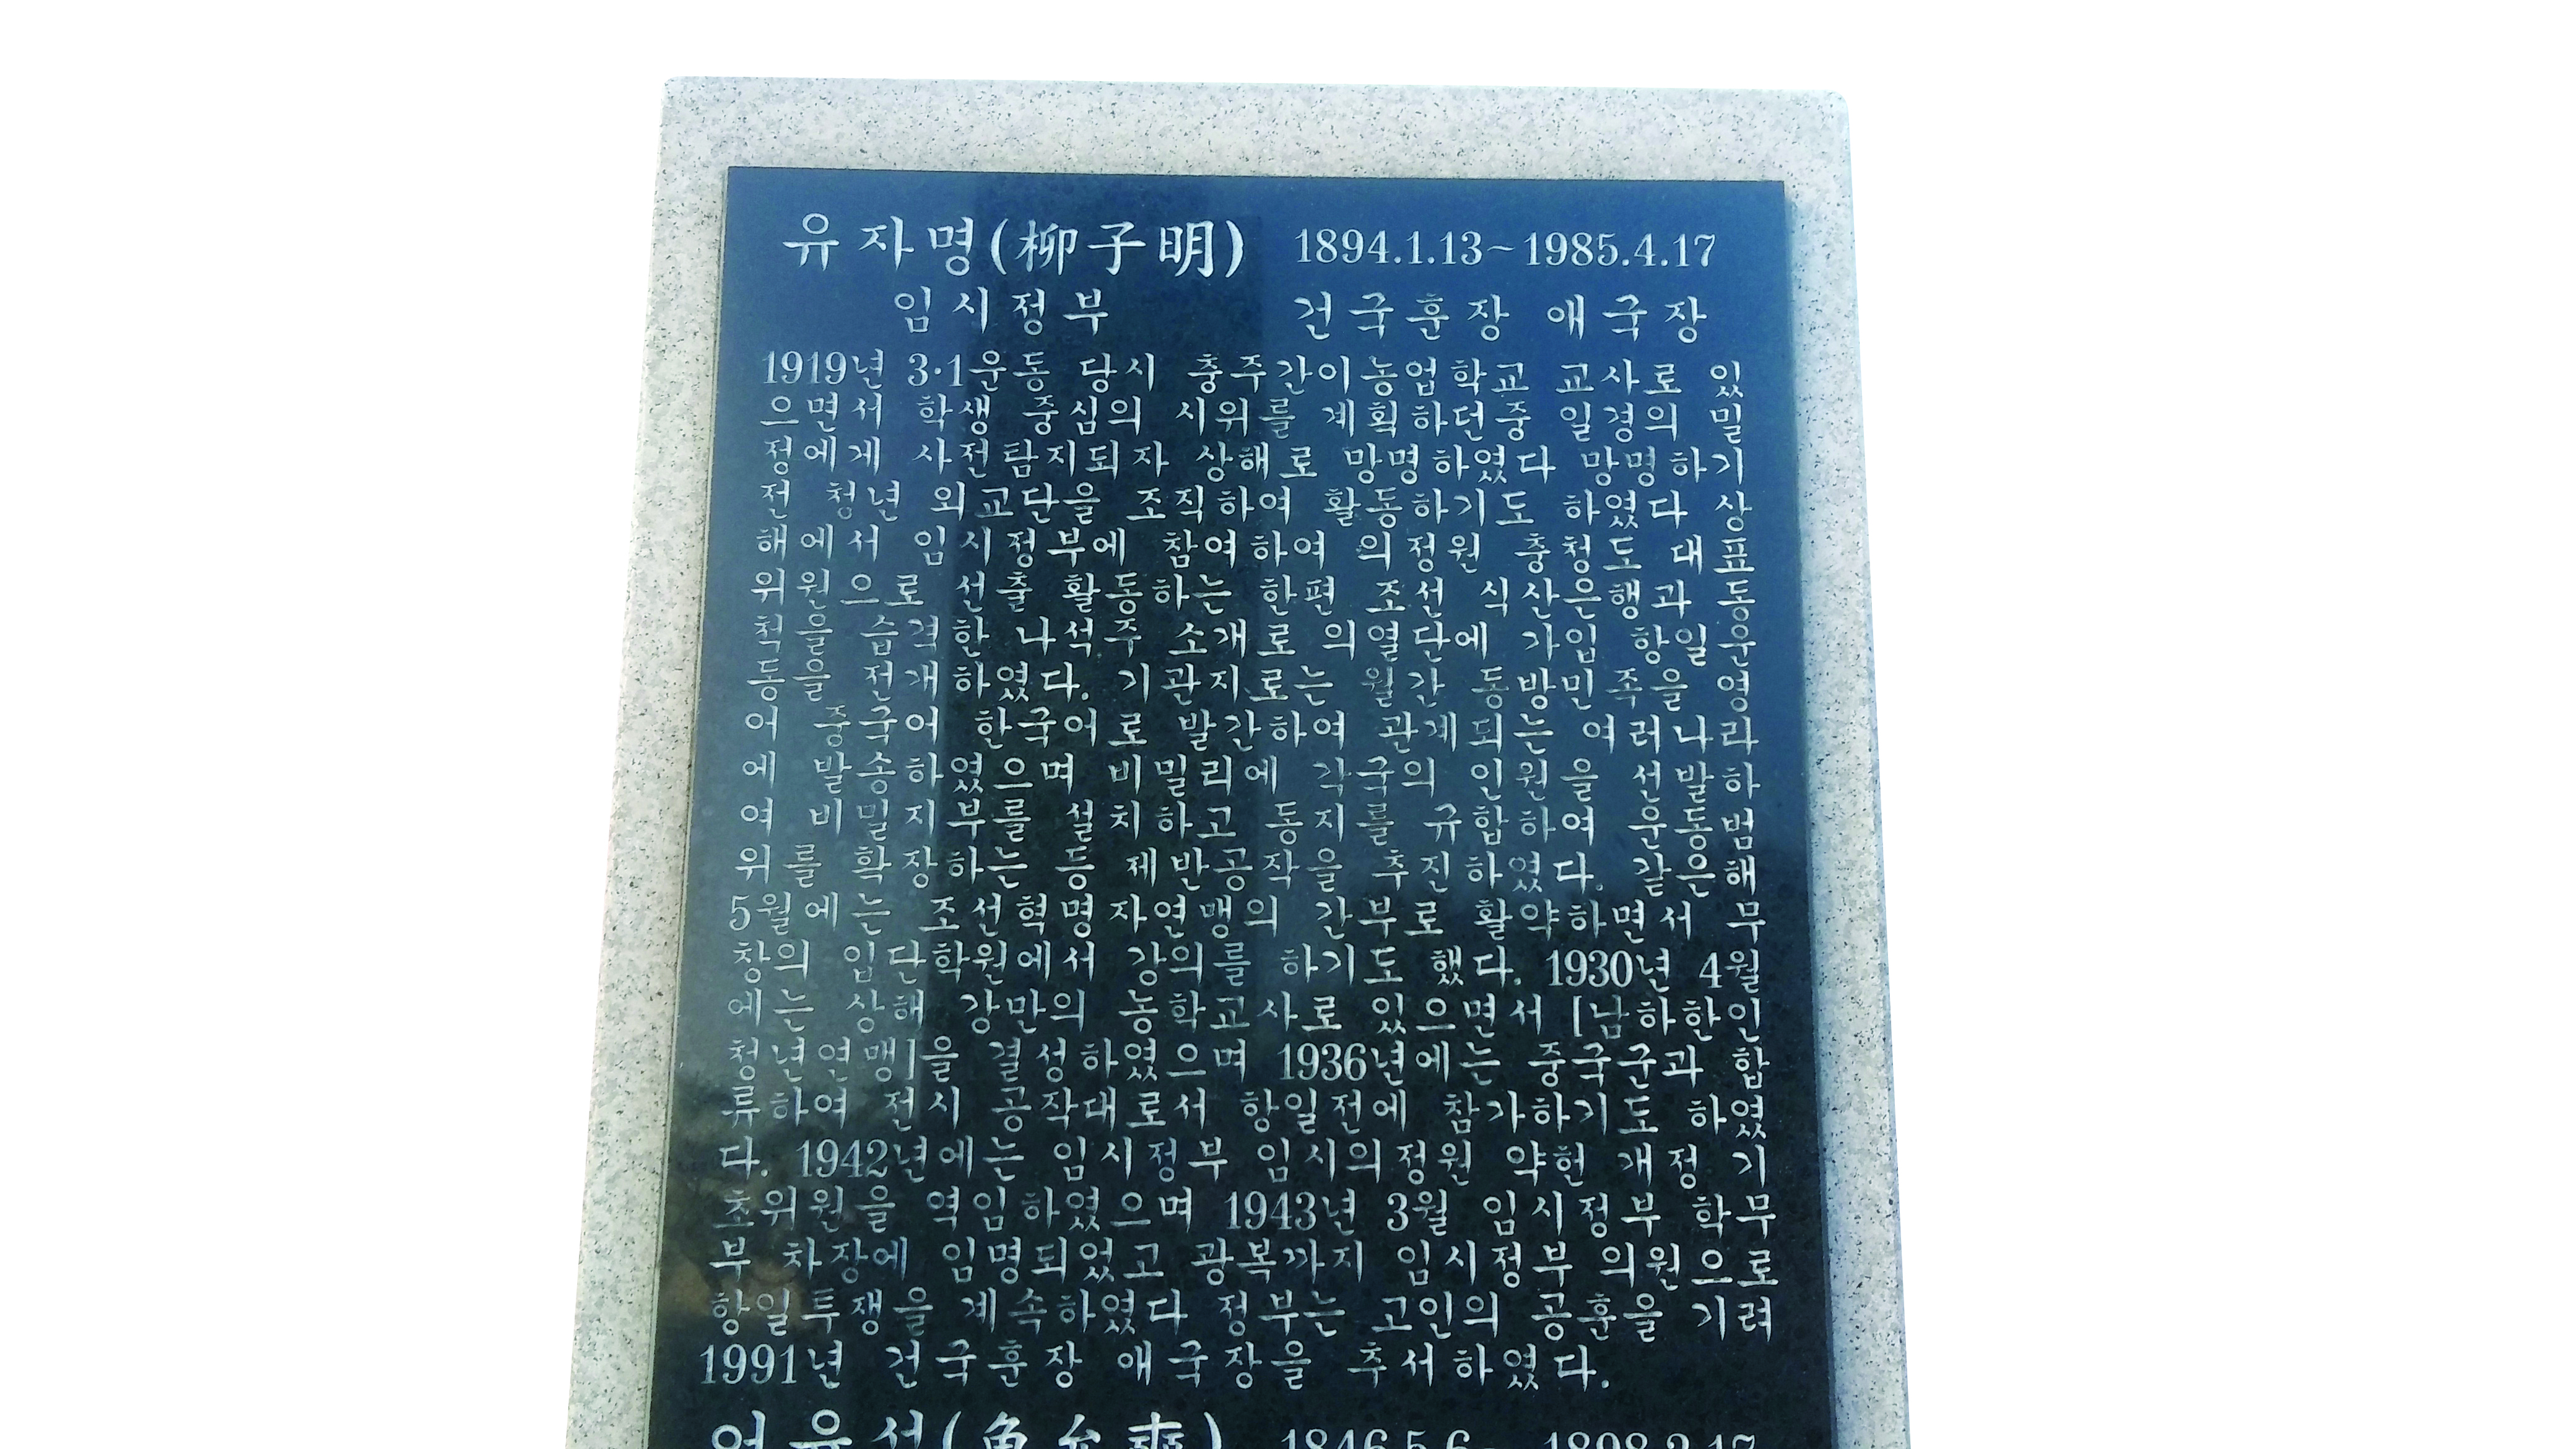 유자명(柳子明) 1894.1.13~1985.4.17
임시정부 건국훈장 애국장
1919년 3·1운동 당시 충주간이농업학교 교사로 있
으면서 학생 중심의 시위를 계획하던중 일경의 밀
정에게 사전탐지되자 상해로 망명하였다 망명하기
전 청년 외교단을 조직하여 활동하기도 하였다 상
해에서 임시정부에 참여하여 의정원 충청도 대표
위원으로 선출 활동하는 한편 조선 식산은행과 동
척을 습격한 나석주 소개로 의열단에 가입 항일운
동을 전개하였다. 기관지로는 월간 동방민족을 영
어 중국어 한국어로 발간하여 관계되는 여러나라
에 발송하였으며 비밀리에 각국의 인원을 선발하
여 비밀지부를 설치하고 동지를 규합하여 운동범
위를 확장하는등 제반공작을 추진하였다. 같은해
5월에는 조선혁명자연맹의 간부로 활약하면서 무
창의 입단학원에서 강의를 하기도 했다. 1930년 4월
에는 상해 강만의 농학교사로 있으면서 [남하한인
청년연맹]을 결성하였으며 1936년에는 중국군과 합
류하여 전시 공작대로서 항일전에 참가하기도 하였
다. 1942년에는 임시정부 임시의정원 약헌 개정 기
초위원을 역임하였으며 1943년 3월 임시정부 학무
부 차장에 임명되었고 광복까지 임시정부 의원으로
항일투쟁을 계속하였다 정부는 고인의 공훈을 기려
1991년 건국훈장 애국장을 추서하였다.
어윤석(魚允奭) 1846.5.6~1898.2.17